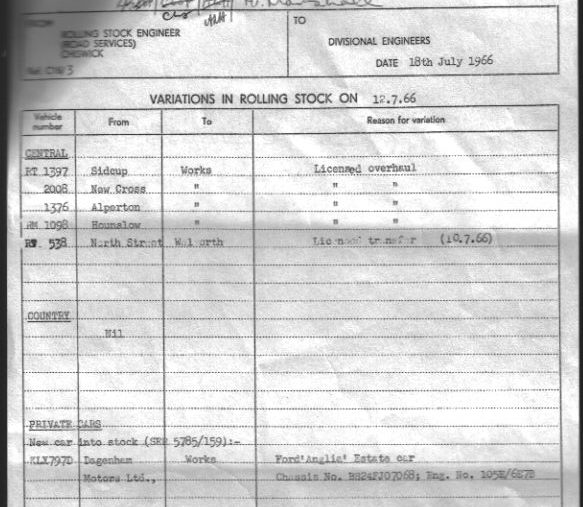 FROM
ROLLING STOCK ENGINEER
(ROAD SERVICES)
CHISWICK
TO
DIVISIONAL ENGINEERS
DATE 18th July 1966
VARIATIONS IN ROLLING STOCK ON 12.7.66
Vehicle number From To Reason for variation
CENTRAL
RT 1397 Sidcup Works Licensed overhaul
2008 New Cross " " "
1376 Alperton " " "
RM 1098 Hounslow " " "
538 North Street Walworth Licensed transfer (10.7.66)
COUNTRY
Nil
PRIVATE CARS
New car into stock (SRR 5785/159):-
KLX797D Dagenham Works Ford'Anglia' Estate car
Motors Ltd., Chassis No. Eng. No.